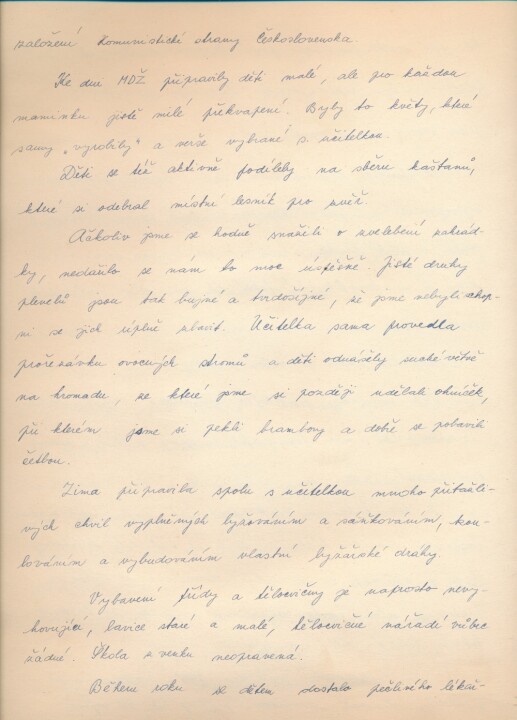 založení Komunistické strany Československa.
Ke dnu MDŽ připravily děti malé, ale pro každou
maminku jistě milé překvapení. Byly to květy, které
samy „vyrobily" a verše vybrané s učitelkou.
Děti se též aktivně podílely na sběru kaštanů,
které si odebral místní lesník pro zvěř.
Ačkoliv jsme se hodně snažili o zvelebení zahrád-
ky, nedařilo se nám to moc úspěšně. Jisté druhy
plevelů jsou tak bujné a tvrdošíjné, že jsme nebyli schop-
ni se jich úplně zbavit. Učitelka sama provedla
prořezávku ovocných stromů a děti odnášely suché větve
na hromadu, ze které jsme si později udělali ohníček,
při kterém jsme si pekli brambory a dobře se pobavili
četbou.
Zima připravila spolu s učitelkou mnoho přitažli-
vých chvil vyplněných lyžováním a sáňkováním, kou-
lováním a vybudováním vlastní lyžařské dráhy.
Vybavení třídy a tělocvičny je naprosto nevy-
hovující, lavice staré a malé, tělocvičné nářadí vůbec
žádné. Škola z venku neopravená.
Během roku se dětem dostalo pečlivého lékař-